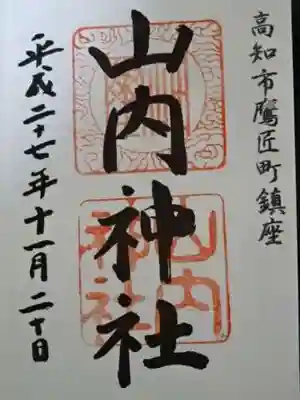 高知市鷹匠町鎮座
山内神社
山内
神社
平成二十七年十一月二十日